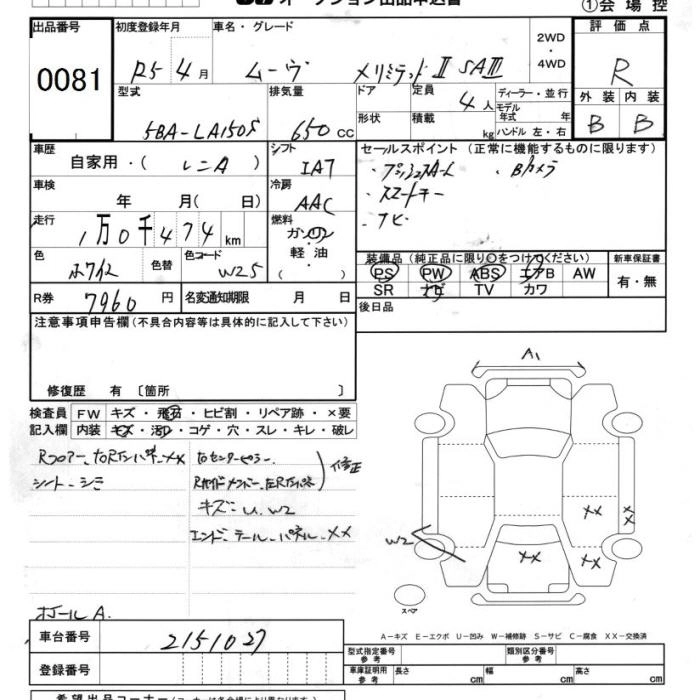 オークション出品申込書
①会場控
出品番号 初度登録年月 車名・グレード 2WD・4WD 評価点
0081 R5年4月 ムーヴ メリミテッドⅡ SAⅢ R
型式 排気量 ドア 定員 ディーラー・並行 外装 内装
4人 モデル年式 年
5BA-LA150S 650cc 形状 積載 kg ハンドル 左・右 B B
車歴 自家用・(レンA) シフト IAT セールスポイント(正常に機能するものに限ります)
・プッシュスタート ・Bカメラ
車検 年 月(日) 冷房 AAC ・スマートキー
・ナビ
走行 1万0千474km 燃料 ガソリン・軽油()
色 ホワイト 色替 色コード W25 装備品(純正品に限り○をつけてください) 新車保証書
PS PW ABS エアB AW 有・無
SR ナビ TV カワ
R券 7960円 名変通知期限 月 日 後日品
注意事項申告欄(不具合内容等は具体的に記入して下さい)
修復歴 有〔箇所 〕
検査員記入欄 FW キズ・飛石・ヒビ割・リペア跡・×要
内装 キズ・汚れ・コゲ・穴・スレ・キレ・破レ
シート-シミ
キズ=U.W2
エンド.テール.パネル-XX
修正
ホールA.
A1
XX
XX
XX
XX
W2
スペア
A-キズ E-エクボ U-凹み W-補修跡 S-サビ C-腐食 XX-交換済
車台番号 2151027
型式指定番号 参考 類別区分番号 参考
登録番号 車庫証明用 参考 長さ cm 幅 cm 高さ cm
希望出品コーナー